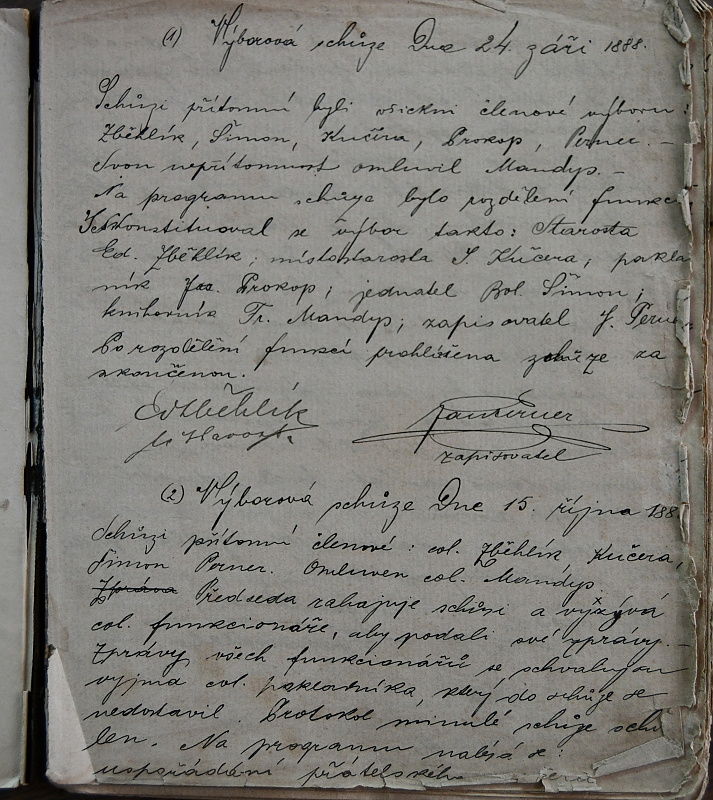 (1) Výborová schůze Dne 24. září 1888.
Schůzi přítomni byli všickni členové výboru:
Zběhlík, Šimon, Kučera, Prokop, Perner. –
Svou nepřítomnost omluvil Mandys. –
Na programu schůze bylo rozdělení funkcí
konstituoval se výbor takto: Starosta
Ed. Zběhlík; místostarosta J. Kučera; pokla
ník Prokop; jednatel Bol. Šimon;
knihovník Fr. Mandys; zapisovatel J. Perner
Po rozdělení funkcí prohlášena schůze za
skončenou.
Ed Zběhlík Jan Perner
zapisovatel
(2) Výborová schůze Dne 15. října 188
Schůzi přítomni členové: col. Zběhlík Kučera,
Šimon Perner. Omluven col. Mandys
Zpráva Předseda zahajuje schůzi a vyzývá
col. funkcionáře, aby podali své zprávy. –
Zprávy všech funkcionářů se schvalují
vyjma col. pokladníka, který do schůze se
nedostavil. Protokol minulé schůze schvá
len. Na programu nalézá se:
uspořádání přátelského